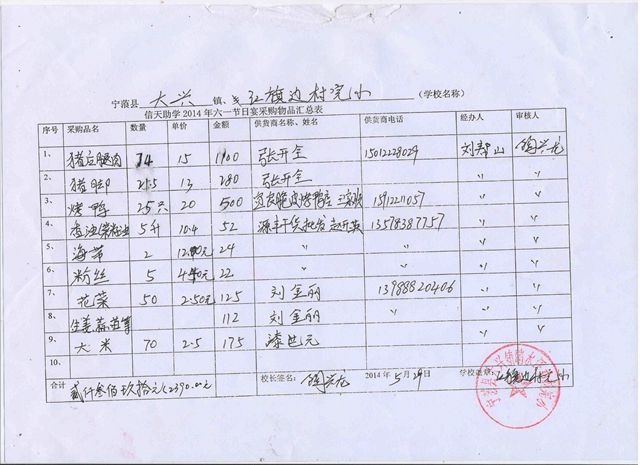 宁蒗县 大兴 镇、乡 红旗边村完小 (学校名称)
信天助学 2014 年六一节日宴采购物品汇总表
序号 采购品名 数量 单价 金额 供货商名称、姓名 供货商电话 经办人 审核人
1、 猪后腿肉 74 15 1100 张开全 15012228029 刘寿山 陶兴龙
2、 猪脚 21.5 13 280 张开全 〃 〃
3、 烤鸭 25只 20 500 1591221057 〃 〃
4、 5升 10.4 52 源丰干货批发 13578387757 〃 〃
5、 海带 2 24 〃 〃 〃 〃
6、 粉丝 5 22 〃 〃 〃 〃
7、 花菜 50 2.50元 125 刘金丽 13988820406 〃 〃
8、 生姜蒜苗等 112 刘金丽 〃 〃
9、 大米 70 2.5 175 漆世元 〃 〃
10、
合计 贰仟叁佰玖拾元 2390.00元 校长签名: 陶兴龙 2014 年 5 月 29日 学校盖章: 红旗边村完小